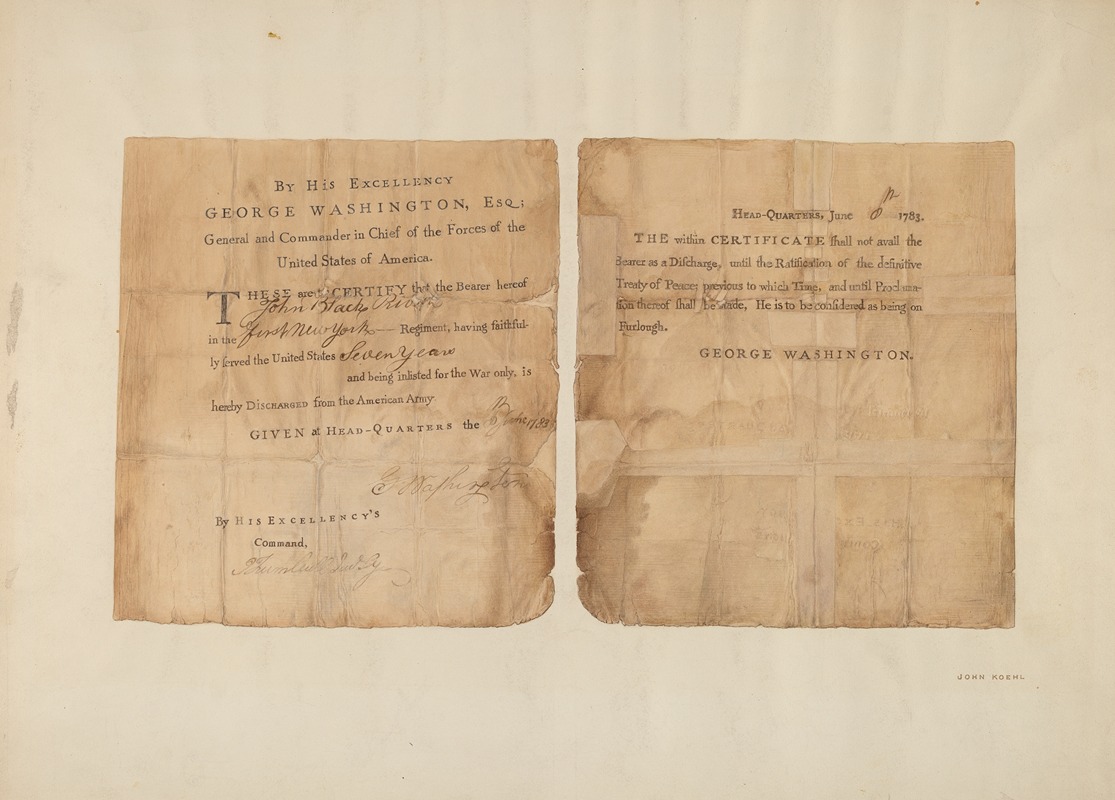 By His Excellency
GEORGE WASHINGTON, Esq;
General and Commander in Chief of the Forces of the
United States of America.
THESE are to CERTIFY that the Bearer hereof
John Black
in the First New York Regiment, having faithful-
ly served the United States Seven Years
and being inlisted for the War only, is
hereby Discharged from the American Army
GIVEN at Head-Quarters the 8th June 1783
G Washington
By His Excellency's
Command,
Head-Quarters, June 8th 1783.
THE within CERTIFICATE shall not avail the
Bearer as a Discharge, until the Ratification of the definitive
Treaty of Peace; previous to which Time, and until Proclama-
tion thereof shall be made, He is to be considered as being on
Furlough.
GEORGE WASHINGTON.
JOHN KOEHL